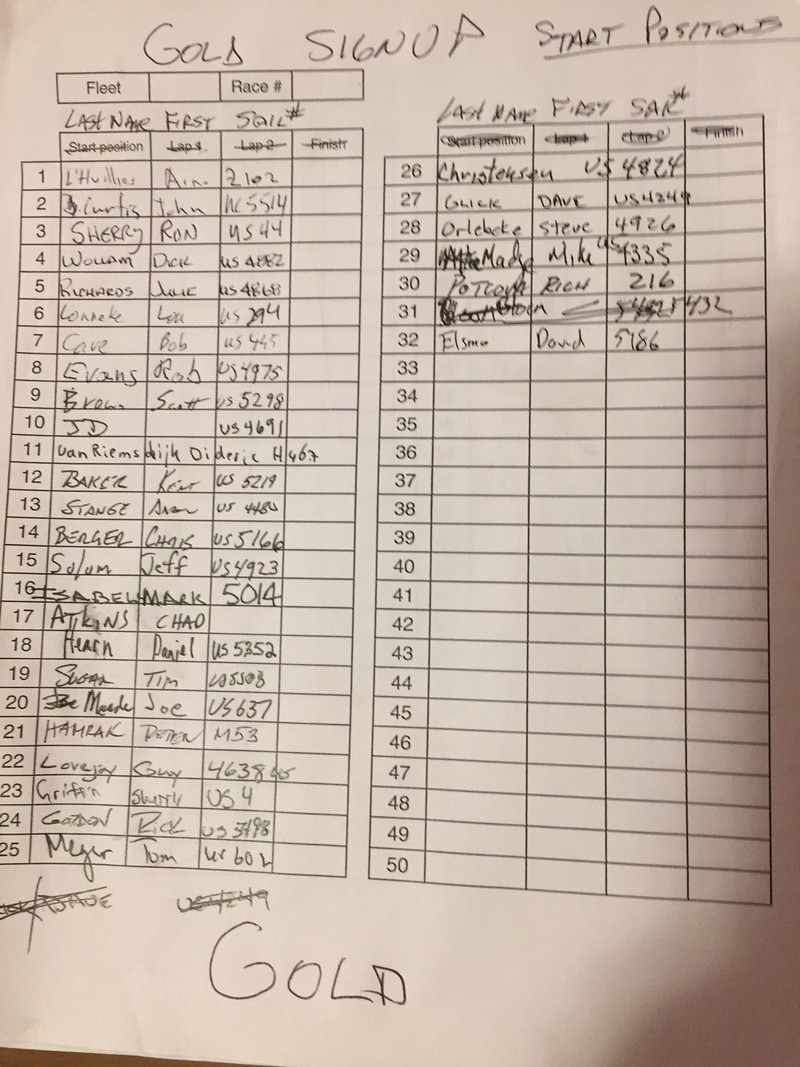 GOLD SIGNUP START POSITIONS
Fleet Race #
LAST NAME FIRST SAIL#
Start position Lap 1 Lap 2 Finish
1 L'Huillier 2102
2 Curtis John 5514
3 SHERRY RON US 44
4 WOLLAM DICK US 4882
5 RICHARDS JULIE US 4868
6 Lonneke Lou US 294
7 Cave Bob US 445
8 Evans Rob US4975
9 Brown Scott US 5298
10 JD US4691
11 van Riemsdijk Dideric H467
12 BAKER Kent US 5219
13 STANGE US 4480
14 BERGER CHRIS US5166
15 Solum Jeff US4923
16 ISABELL MARK 5014
17 ATKINS CHAD
18 Hearn Daniel US 5352
19 SUGAR TIM US5503
20 Meade Joe US637
21 HAMRAK PETER M53
22 Lovejoy Guy 4638 US
23 Griffin Sherry US 4
24 GORDON RICK
25 Meyer Tom US 602
US4249
LAST NAME FIRST SAIL#
Start position Lap 1 Lap 2 Finish
26 Christensen US 4824
27 GLICK DAVE US4249
28 Orlebeke Steve 4926
29 Mike US 4335
30 RICH 216
31 5432
32 Elsmo David 5186
33
34
35
36
37
38
39
40
41
42
43
44
45
46
47
48
49
50
GOLD